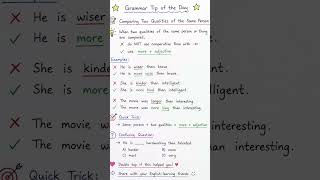 Grammar Tip of the Day
Comparing Two Qualities of the Same Person
When two qualities of the same person or thing
are compared,
✗ do NOT use comparative form with -er
✓ use more + adjective
Examples:
✗ He is wiser than brave.
✓ He is more wise than brave.
✗ She is kinder than intelligent.
✓ She is more kind than intelligent.
✗ The movie was longer than interesting.
✓ The movie was more long than interesting.
Quick Trick:
→ Same person + two qualities → more + adjective
Confusing Question:
→ He is ____ hardworking than talented.
A) harder B) more
C) most D) very
Double tap if this helped you!
Share with your English-learning friends